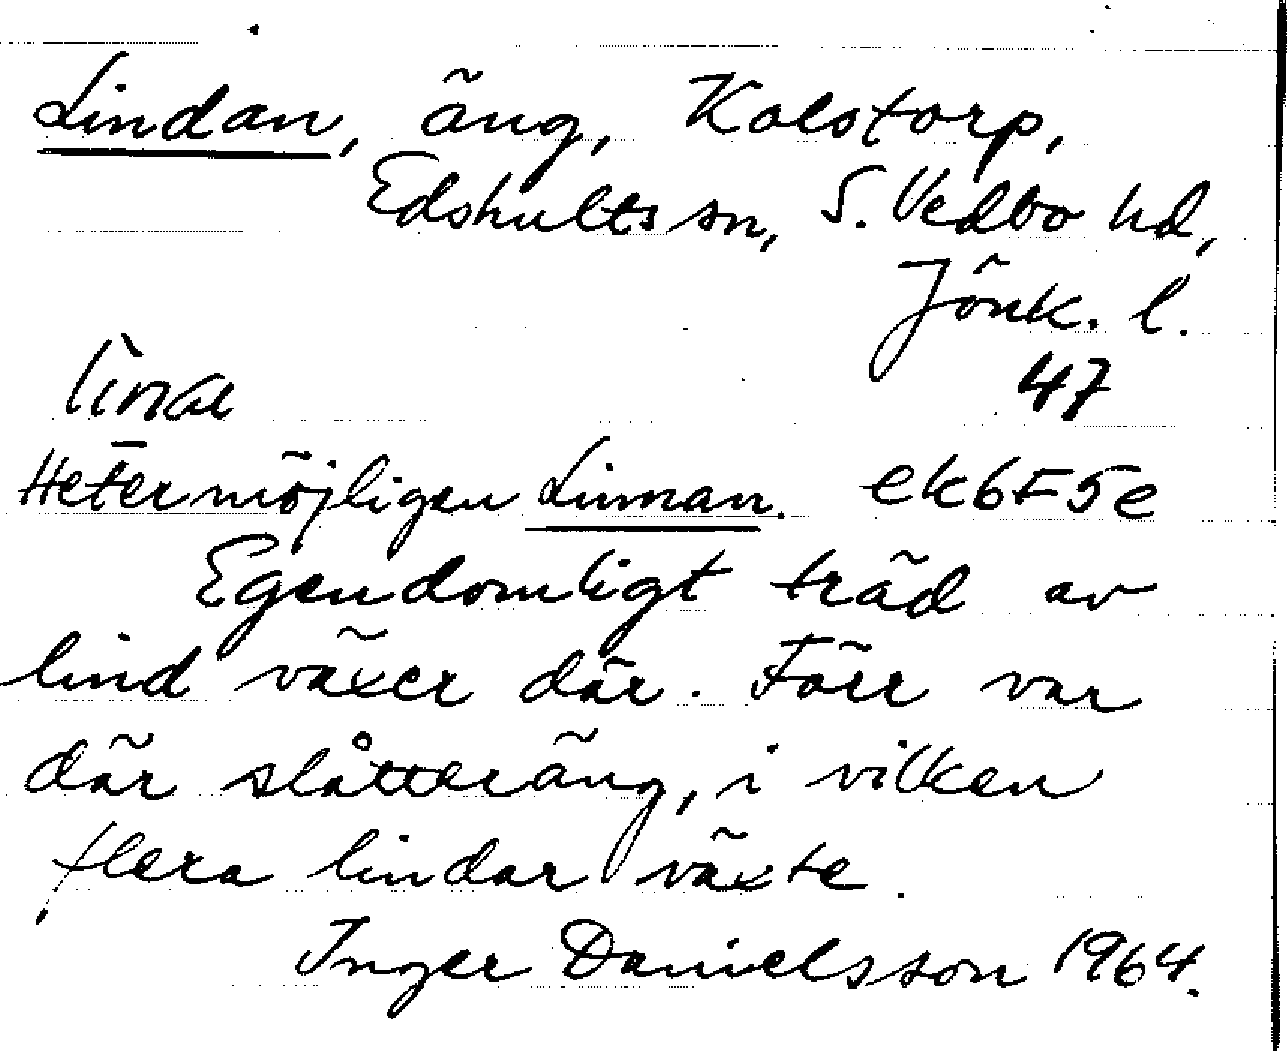 Lindan, äng, Kolstorp,
Edshults sn, S. Vedbo hd,
Jönk. l.
47
Heter möjligen Linnan. ek 6F5e
Egendomligt träd av
lind växer där. Förr var
där slåtteräng, i vilken
flera lindar växte.
Inger Danielsson 1964.